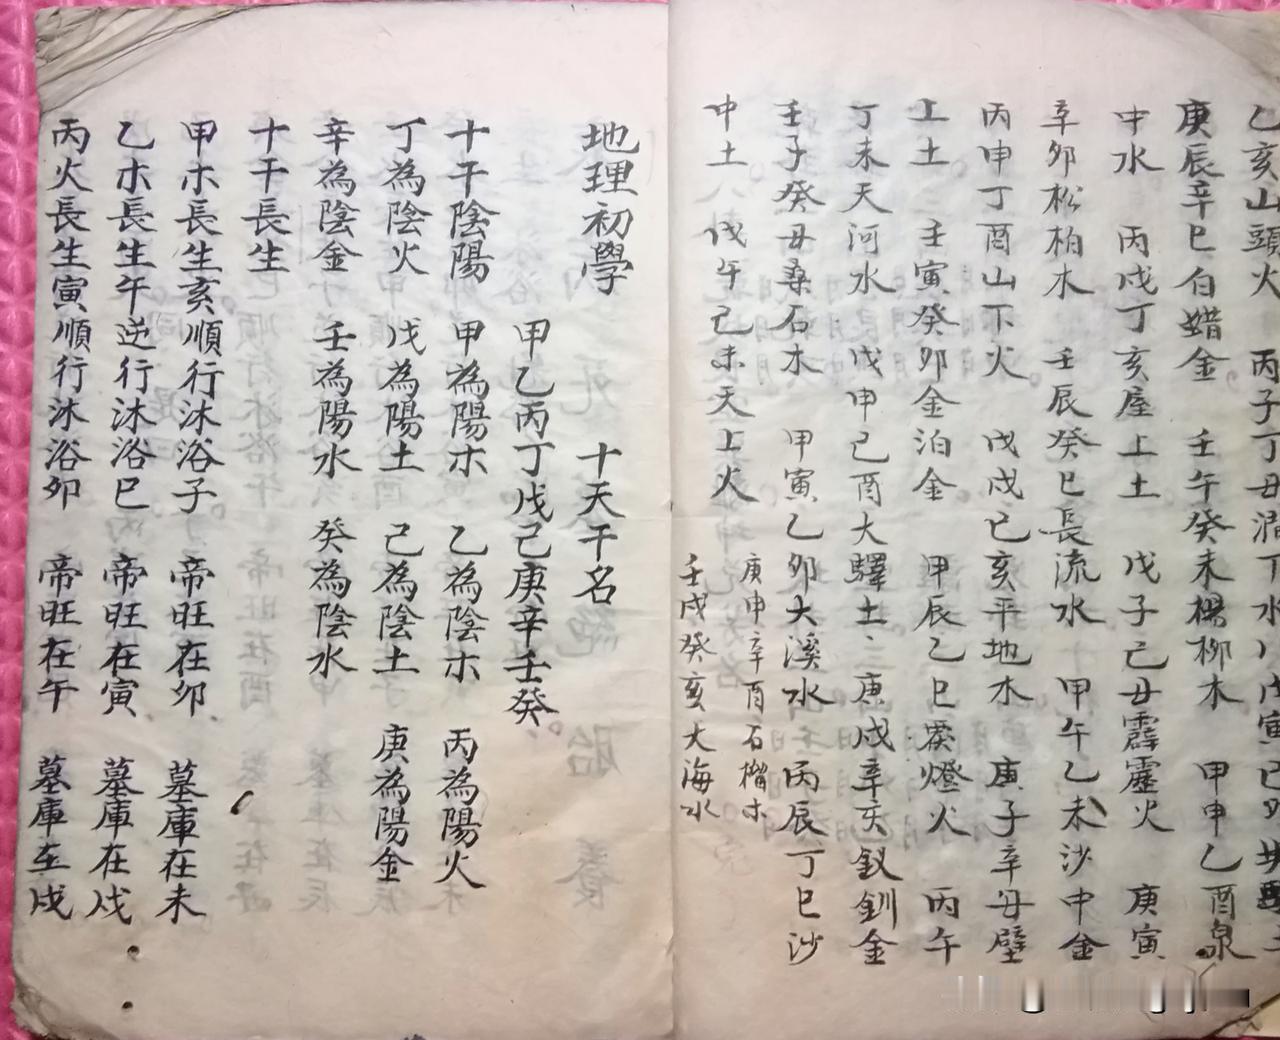 乙亥山頭火 丙子丁丑澗丁水 戊寅己卯
庚辰辛巳白蜡金 壬午癸未楊柳木 甲申乙酉泉
中水 丙戌丁亥屋上土 戊子己丑霹靂火 庚寅
辛卯松柏木 壬辰癸巳長流水 甲午乙未沙中金
丙申丁酉山下火 戊戌己亥平地木 庚子辛丑壁
上土 壬寅癸卯金泊金 甲辰乙巳燈火 丙午
丁未天河水 戊申己酉大驛土 庚戌辛亥釵釧金
壬子癸丑桑石木 甲寅乙卯大溪水 丙辰丁巳沙
中土 戊午己未天上火 庚申辛酉石榴木
壬戌癸亥大海水
地理初學 十天干名
甲乙丙丁戊己庚辛壬癸
十干陰陽 甲為陽木 乙為陰木 丙為陽火
丁為陰火 戊為陽土 己為陰土 庚為陽金
辛為陰金 壬為陽水 癸為陰水
十干長生
甲木長生亥順行沐浴子 帝旺在卯 墓庫在未
乙木長生午逆行沐浴巳 帝旺在寅 墓庫在戌
丙火長生寅順行沐浴卯 帝旺在午 墓庫在戌